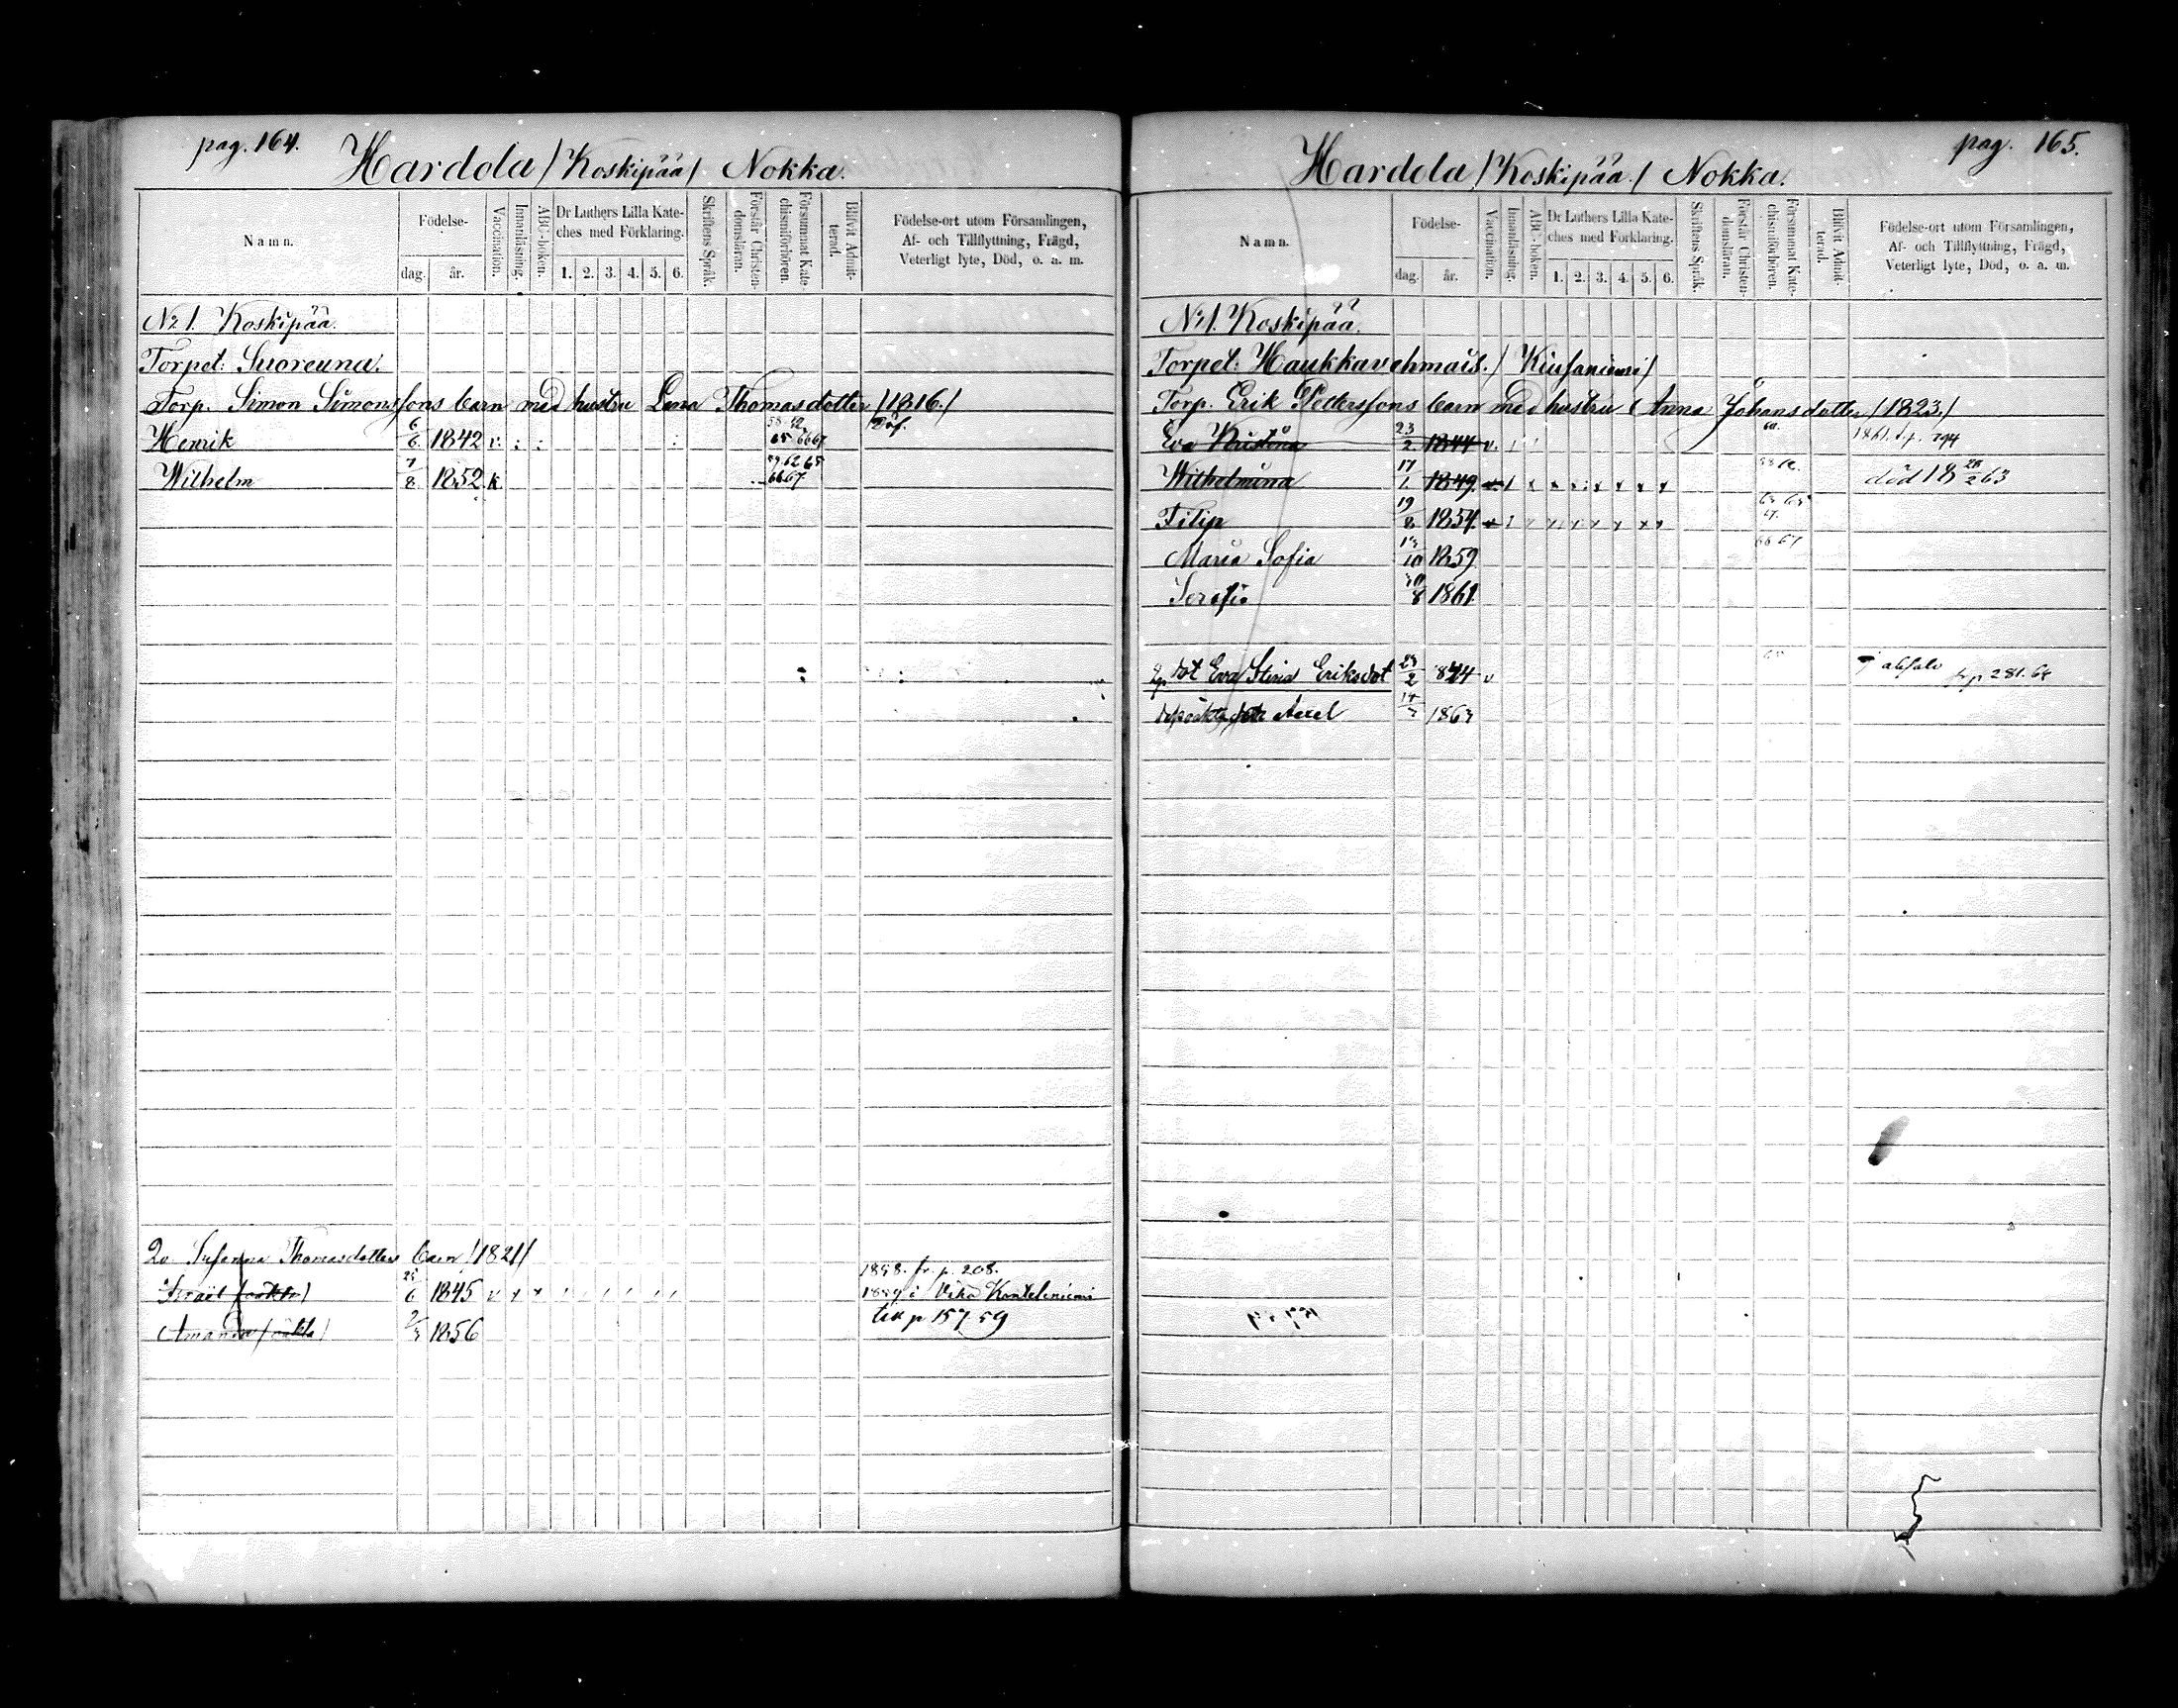 pag. 164.
Hardola / Koskipää / Nokka.
Namn.
Födelse-
dag. år.
Vaccination.
Innanläsning.
ABC-boken.
Dr Luthers Lilla Kate-
ches med Förklaring.
1. 2. 3. 4. 5. 6.
Skriftens Språk.
Förstår Christen-
domsläran.
Försummat Kate-
chismiförhören.
Blifvit Admit-
terad.
Födelse-ort utom Församlingen,
Af- och Tillflyttning, Frägd,
Veterligt lyte, Död, o. a. m.
No 1. Koskipää.
Torpet: Suoreuna.
Torp. Simon Simonssons barn med hustru Lena Thomasdotter /1816./
Henrik 6/6 1842 v. 65 66 67 Döf.
Wilhelm 7/8 1852 k 59 62 65
66 67
Susanna Thomasdotters barn /1821/
1858. fr. p. 208.
Israël 6 1845 v 1859 i Vika Konteleniemi
Amanda 1856 p 157 59
pag. 165.
Hardola / Koskipää / Nokka.
Namn.
Födelse-
dag. år.
Vaccination.
Innanläsning.
ABC-boken.
Dr Luthers Lilla Kate-
ches med Förklaring.
1. 2. 3. 4. 5. 6.
Skriftens Språk.
Förstår Christen-
domsläran.
Försummat Kate-
chismiförhören.
Blifvit Admit-
terad.
Födelse-ort utom Församlingen,
Af- och Tillflyttning, Frägd,
Veterligt lyte, Död, o. a. m.
No 1. Koskipää.
Torpet: Haukkavehmais. / Kiusaniemi /
Torp. Erik Petterssons barn med hustru Anna Johansdotter /1823./
Eva Kristina 23/2 1844 v. 60. 1861. t. p. 294
Wilhelmina 17/1 1849 död 18 28/2 63
Filip 19/8 1854 63 65
67.
Maria Sofia 10 1859 66 67
Serafia 8 1861.
dot Eva Stina Eriksdot 23/2 1844 v p 281. 64
Axel 1863